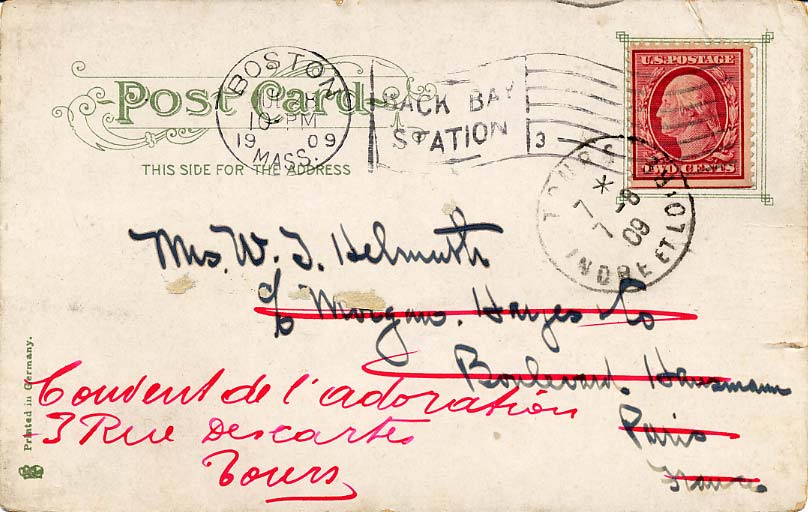 BOSTON
10-PM
19 09
MASS.
BACK BAY
STATION
3
U.S. POSTAGE
TWO CENTS
Post Card
THIS SIDE FOR THE ADDRESS
TOURS
* 7 - 8
7 09
INDRE ET LOIRE
Mrs. W. T. Helmuth
c/o Morgan. Harjes Co
Boulevard. Hausmann
Paris
France
Couvent de l'adoration
3 Rue Descartes
Tours
Printed in Germany.